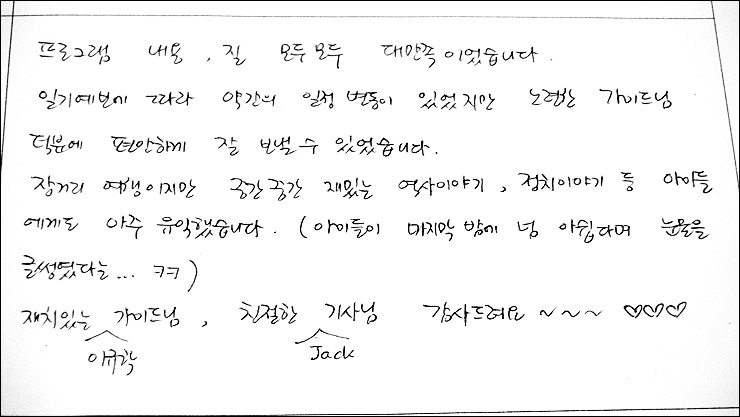 프로그램 내용, 질 모두모두 대만족이었습니다.
일기예보에 따라 약간의 일정 변동이 있었지만 노련한 가이드님
덕분에 편안하게 잘 보낼 수 있었습니다.
장거리 여행이지만 중간중간 재밌는 역사이야기, 정치이야기 등 아이들
에게도 아주 유익했습니다. (아이들이 마지막 밤에 넘 아쉽다며 눈물을
글썽였다는... ㅋㅋ)
재치있는 가이드님, 친절한 기사님 감사드려요~~~ ♡♡♡
Jack